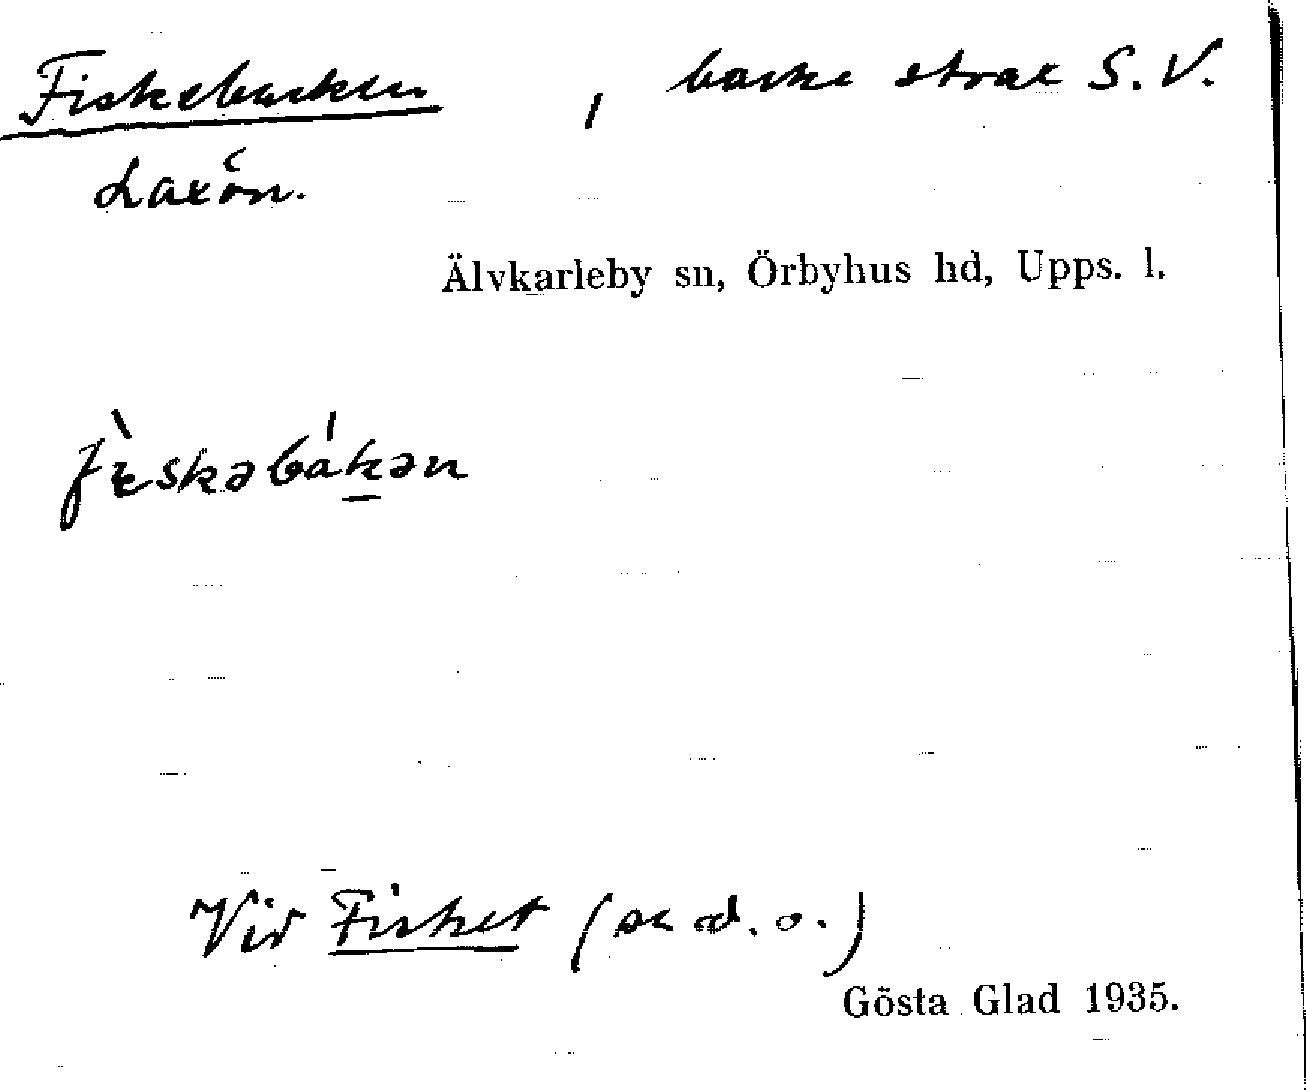 Fiskebacken, backe strax S.V.
Laxön.
Älvkarleby sn, Örbyhus hd, Upps. l.
fìskəbákən
Vid Fisket (se d. o.)
Gösta Glad 1935.